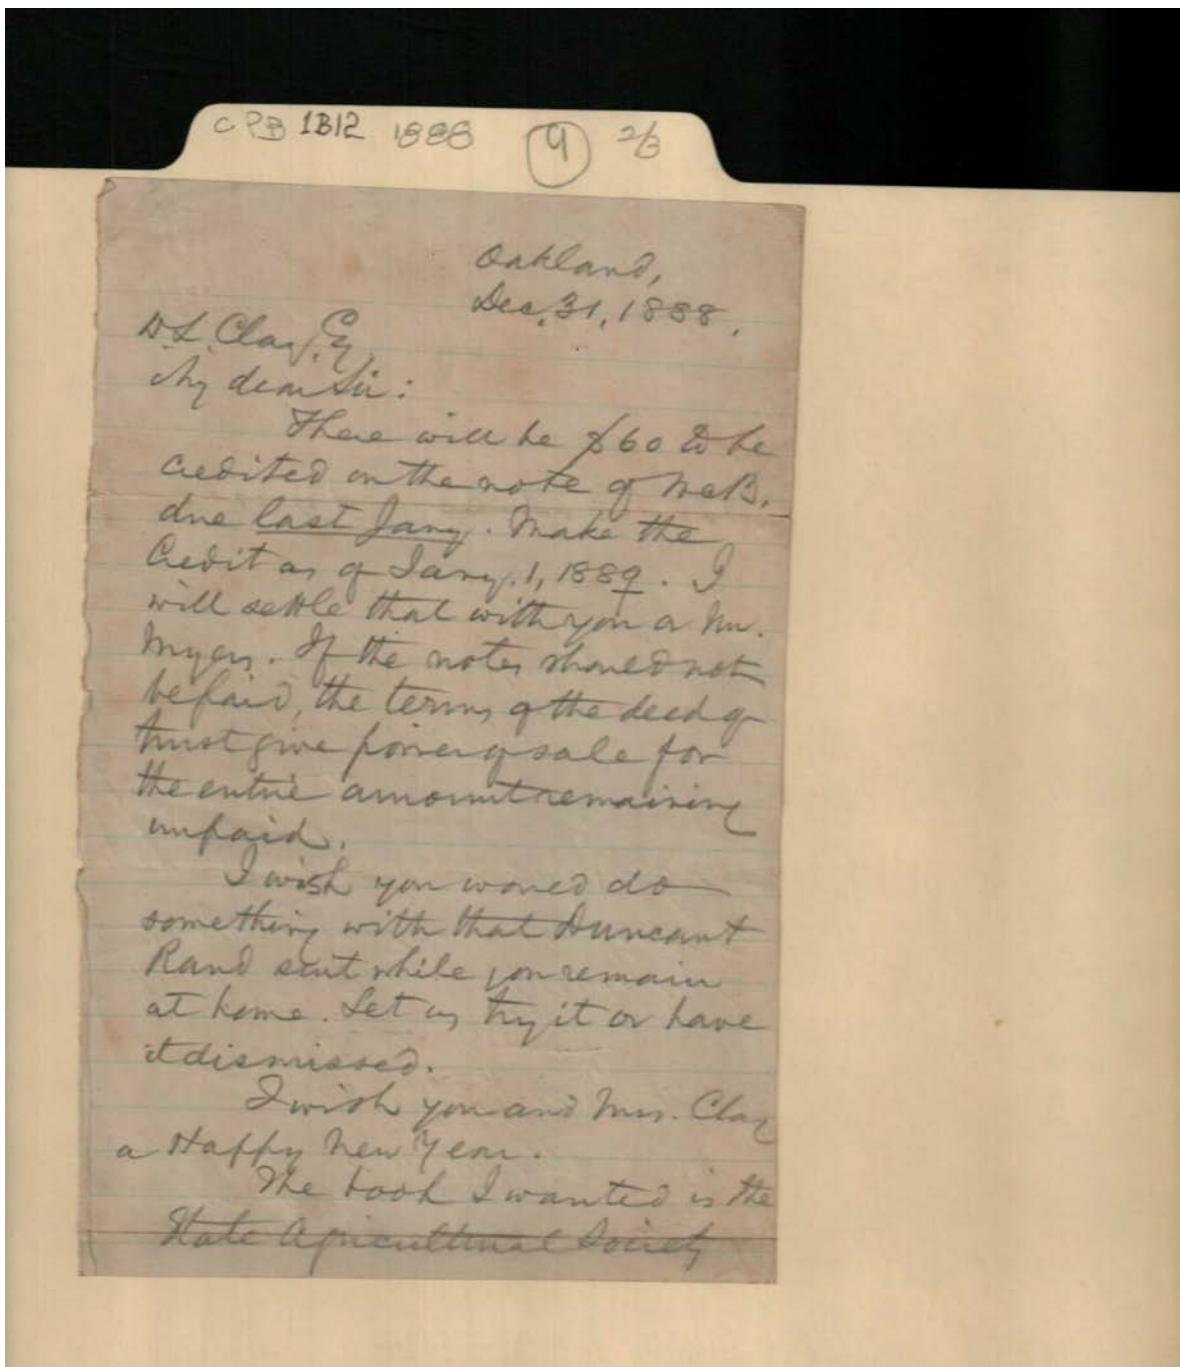 CPB 1B12 1888 9 2/3
Oakland,
Dec. 31, 1888.
D. L. Clay, Esq.
My dear Sir:
There will be $60 to be
credited on the note of McB.
due last Jany. Make the
credit as of Jany. 1, 1889. I
will settle that with you or Mr.
Myers. If the notes should not
be paid, the terms of the deed of
trust give power of sale for
the entire amount remaining
unpaid.
I wish you would do
something with that Duncan &
Rand suit while you remain
at home. Let us try it or have
it dismissed.
I wish you and Mrs. Clay
a Happy New Year.
The book I wanted is the
State Agricultural Society